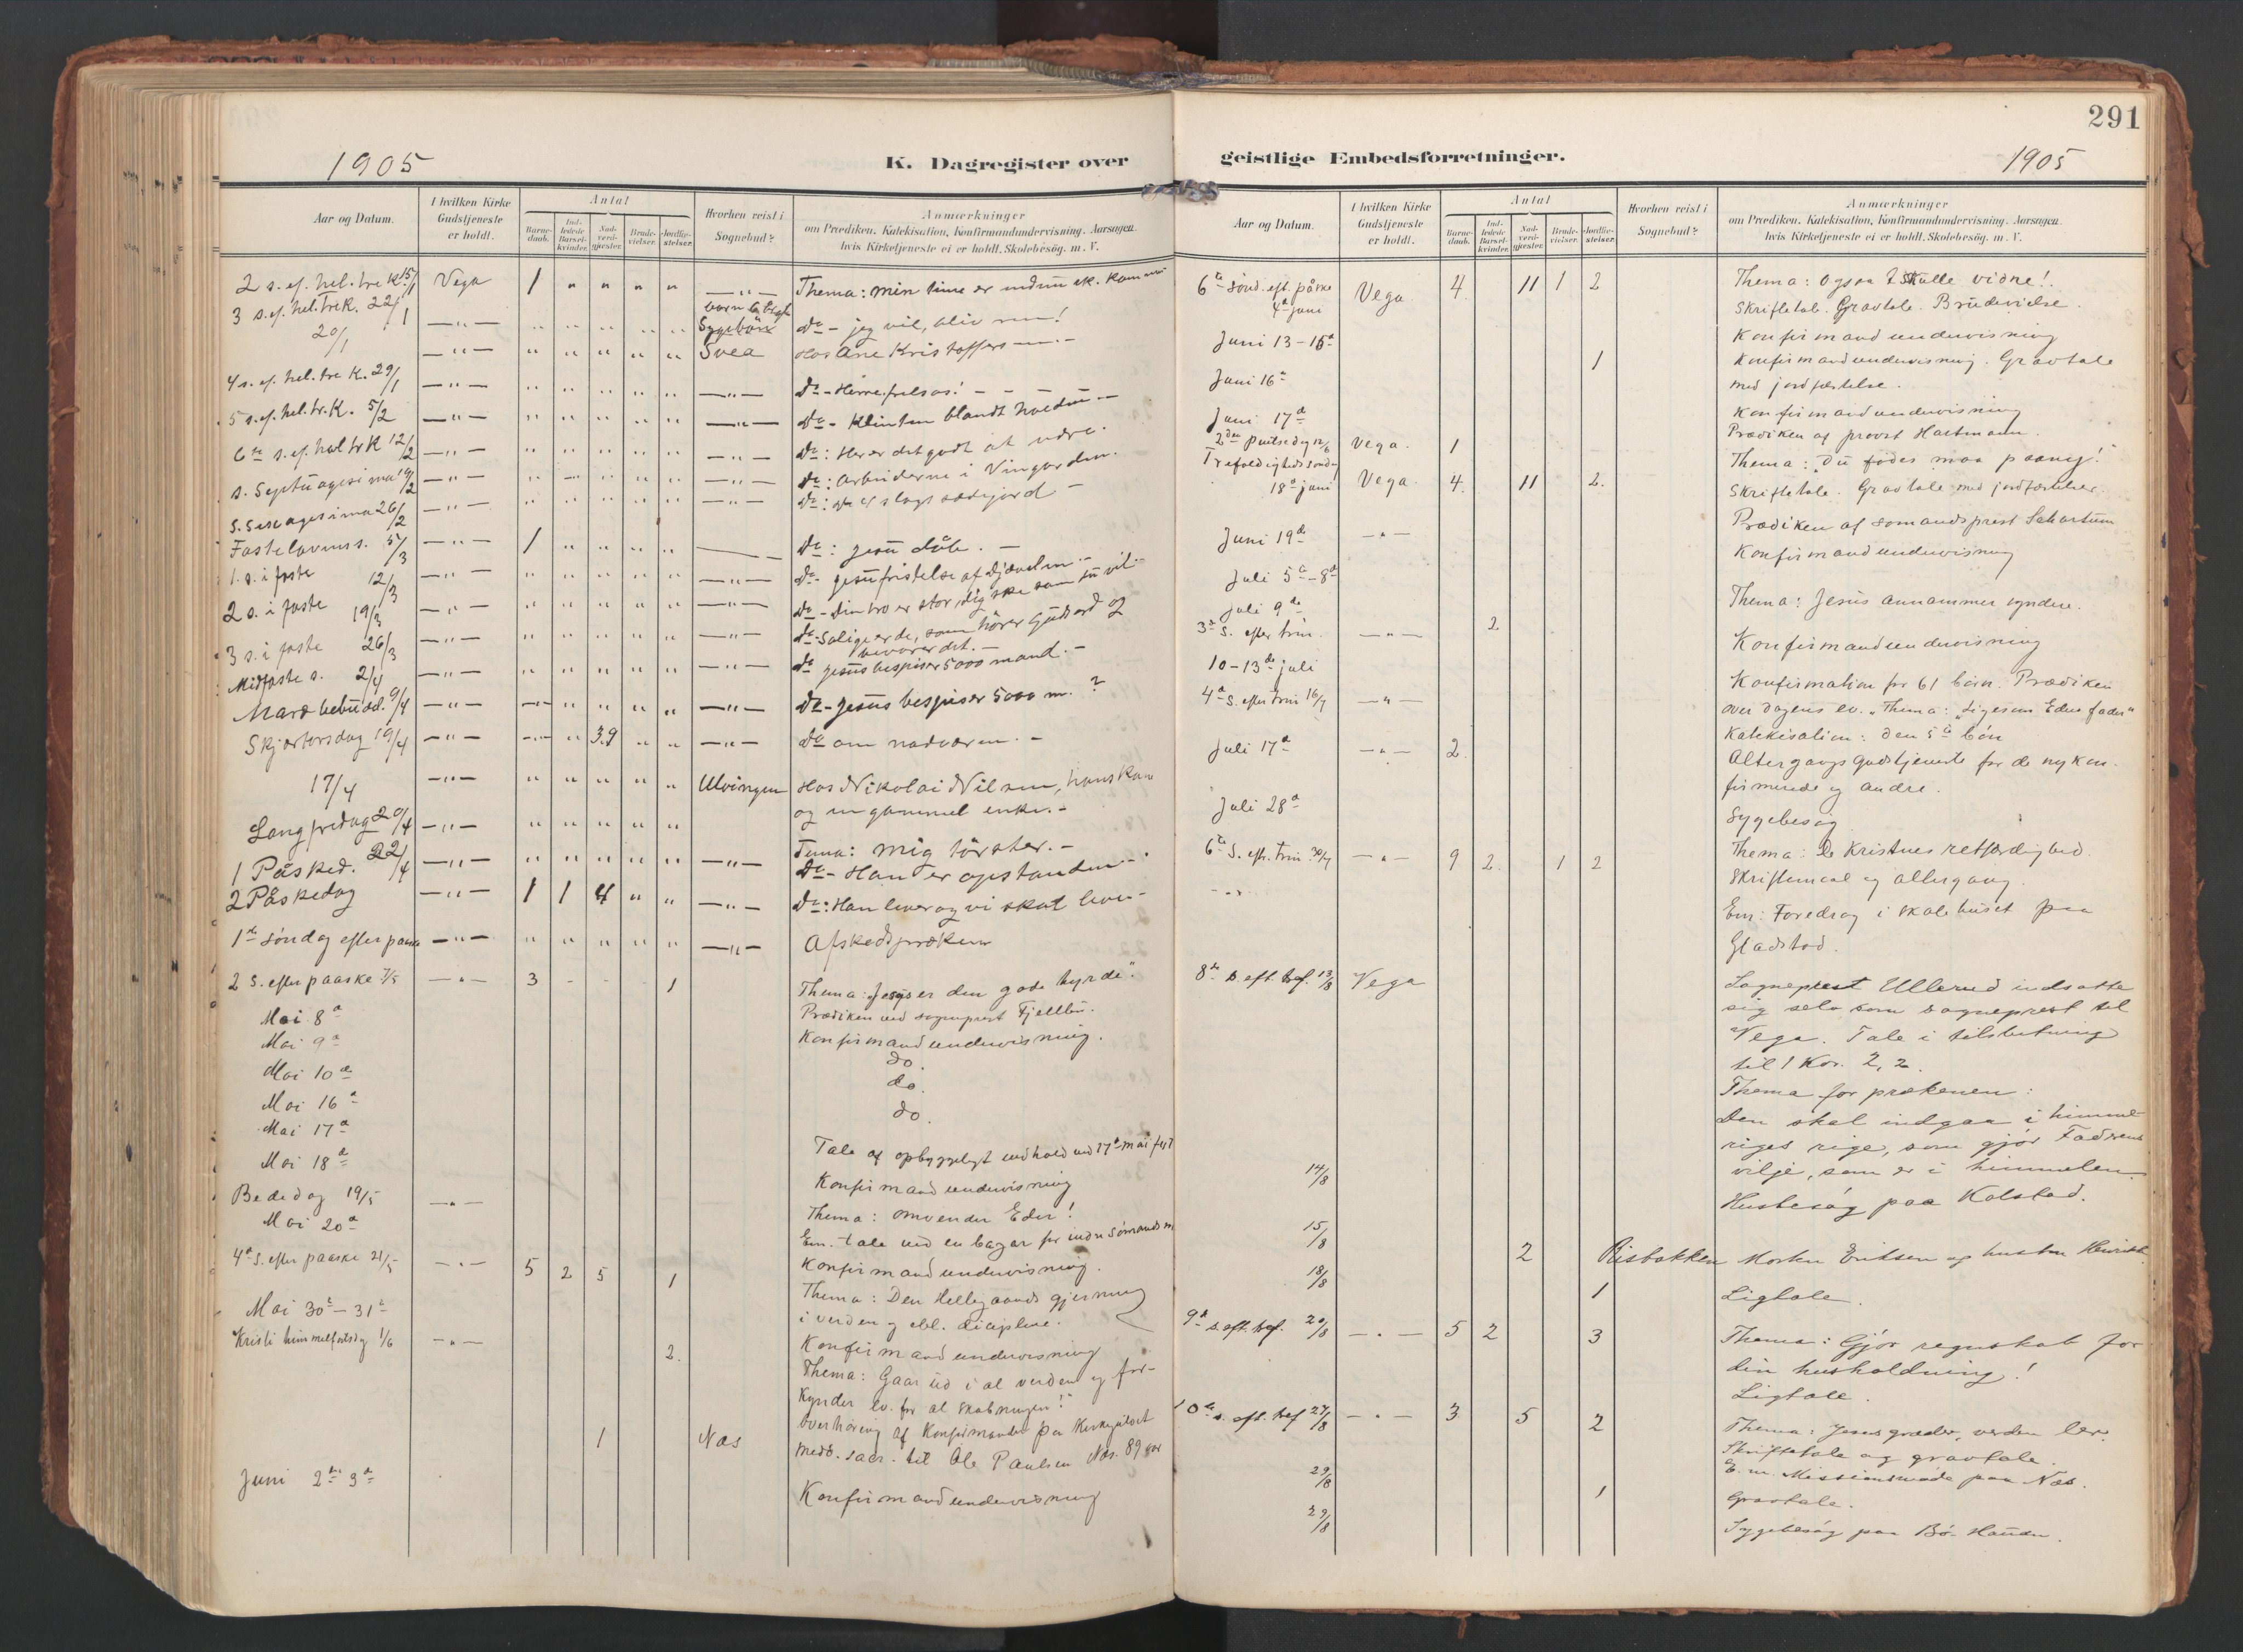 291
1905
K. Dagregister over
Aar og Datum.
I hvilken Kirke Gudstjeneste er holdt.
Antal
Barne-daab.
Ind-ledede Barsel-kvinder.
Nad-verd-gjester.
Brude-vielser.
Jordfæ-stelser.
Hvorhen reist i Sognebud?
Anmærkninger
om Prædiken, Katekisation, Konfirmandundervisning, Aarsagen
hvis Kirketjeneste ei er holdt, Skolebesög. m. V.
2 s. ef. hel. tre k. 15/1 Vega 1 " " " " —"— Thema: min time er endnu ik. kommen
3 s. ef. hel. trek. 22/1 —"— " " " " " d° - jeg vil, bliv ren!
20/1 —"— " " " " " Svea Hos Ane Kristoffers
4 s. ef. hel. tre k. 29/1 —"— " " " " " —"— d° - Herre frels os! -
5 s. ef. hel. tr. k. 5/2 —"— " " " " " —"— d° - Klinten blandt hveden -
6te s. ef. hel tr k 12/2 —"— " " " " " —"— d°: Her er det godt at være.
s. Septuagesima 19/2 —"— " " " " " —"— d°: Arbeiderne i Vingården.
S. Sexagesima 26/2 —"— " " " " " —"— d°: slags sædejord -
Fastelavens s. 5/3 —"— 1 " " " " — d°: Jesu dåb. -
1. s. i faste 12/3 —"— " " " " " —"— d° - Jesu fristelse af Djævelen -
2 s. i faste 19/3 —"— " " " " " —"— d° - Din tro er stor, dig ske som du vil -
3 s. i faste 26/3 —"— " " " " " —"— d° - Salige er de, som hører Guds ord og
bevarer det. -
Midfaste s. 2/4 —"— " " " " " —"— d° Jesus bespiser 5000 mand. -
Mariæ bebud. 9/4 —"— —"— " " " " —"— d° - Jesus bespiser 5000 m. ?
Skjærtorsdag 19/4 —"— —"— " 39 " " —"— d° om nadværen. -
17/4 —"— " " " " " Ulvingen Hos Nikolai Nilsen, hans kone
og en gammel enke. -
Langfredag 20/4 —"— " " " " " Tema: mig törster. -
1 Påsked. 22/4 —"— " " " " " —"— d° - Han er opstanden -
2 Påskedag —"— 1 1 4 " " —"— d°: Han lever og vi skal leve -
1ste søndag efter paaske —"— " " " " " —"— Afskedspræken
2 S. efter paaske 7/5 —"— 3 - - 1 Thema: Jesus er den gode hyrde".
Prædiken ved sogneprest Fjellbu.
Mai 8de Konfirmandundervisning.
Mai 9de do.
Mai 10de do.
Mai 16de do.
Mai 17de Tale af opbyggeligt indhold ved 17de mai fest
Mai 18de Konfirmandundervisning
Bededag 19/5 —"— Thema: Omvender Eder!
Em. tale ved en bazar for indre Sömandsm
Mai 20de Konfirmandundervisning.
4de S. efter paaske 21/5 —"— 5 2 5 1 Thema: Den Helligaands gjerning
i verden og disipline.
Mai 30te - 31te Konfirmandundervisning
Kristi himmelfartsdg 1/6 —"— 2. Thema: Gaar ud i al verden og for-
kynder ev. for al skabningen!"
Overhöring af Konfirmander
1 Næs Medd. sacr. til Ole Paulsen Næs. 89 aar
Juni 2den 3de Konfirmandundervisning
geistlige Embedsforretninger.
1905
Aar og Datum.
I hvilken Kirke Gudstjeneste er holdt.
Antal
Barne-daab.
Ind-ledede Barsel-kvinder.
Nad-verd-gjester.
Brude-vielser.
Jordfæ-stelser.
Hvorhen reist i Sognebud?
Anmærkninger
om Prædiken, Katekisation, Konfirmandundervisning, Aarsagen
hvis Kirketjeneste ei er holdt, Skolebesög. m. V.
6te sönd. eft. påske 4de juni Vega. 4. 11 1 2 Thema: Ogsaa I skulle vidne!
Skriftetale. Gravtale. Brudevielse.
Juni 13-15de Konfirmandundervisning
Juni 16de 1 Konfirmandundervisning. Gravtale
med jordfæstelse.
Juni 17de Konfirmandundervisning
2den pintsedag 12/6 Vega. 1 Prædiken af provst Hartmann.
Trefoldighedssöndag 18de juni Vega 4. 11 2. Thema: Du födes maa paany!
Skriftetale. Gravtale med jordfæstelser.
Juni 19de —"— Prædiken af sömandsprest Schartum
Juli 5te-8de Konfirmandundervisning
Juli 9de
3de S. efter trin. —"— 2 Thema: Jesus annammer syndere.
10-13de juli Konfirmandundervisning
4de S. efter trin 16/7 —"— Konfirmation for 61 börn. Prædiken
over dagens ev. Thema: "Ligesom Eders fader"
Katekisation: den 5te bön
Juli 17de —"— 2. Altergangsgudstjeneste for de nykon-
firmerede og andre.
Juli 28de Sygebesög
6te S. eftr. trin 30/7 —"— 9 2. 1 2 Thema: De kristnes retfærdighed.
Skriftemaal og altergang.
Em: Foredrag i skolehuset paa
Gladstad.
8de s. eft. tref. 13/8 Vega Sogneprest Ullerud indsatte
sig selv som sogneprest til
Vega. Tale i tilslutning
til 1 Kor. 2, 2.
Thema for prækenen:
Den skal indgaa i himme-
riges rige, som gjör Faderens
vilje, som er i himmelen.
14/8 Husbesög paa Kolstad.
15/8 2 Risbakken Morten Eriksen og hustru
18/8 1 Ligtale.
9de s. eft. tref. 20/8 —"— 5 2 3 Thema: Gjör regnskab for
din husholdning!
Ligtale.
10de s. eft. tref 27/8 —"— 3 5 2 Thema: Jesus græder, verden ler.
Skriftetale og gravtale.
E. m. Missionsmöde paa Næs.
29/8 1 Gravtale.
29/8 Sygebesög paa